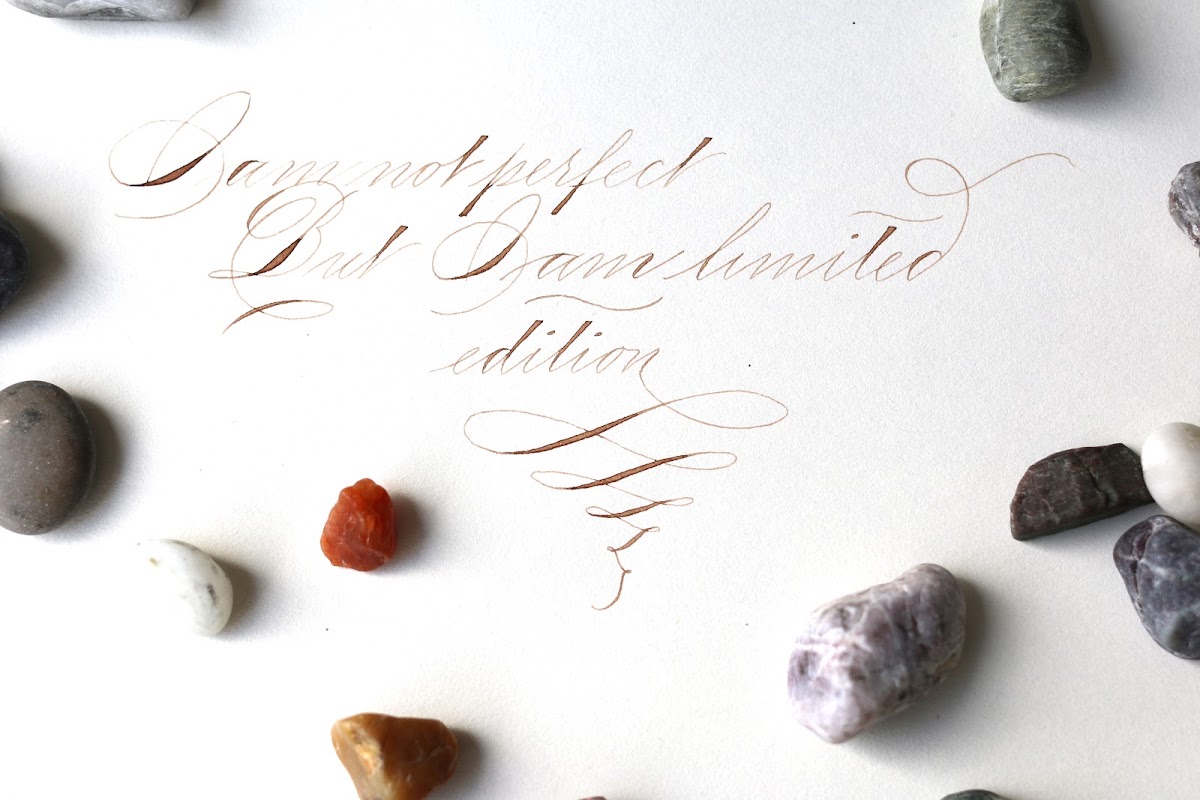 I am not perfect
But I am limited
edition